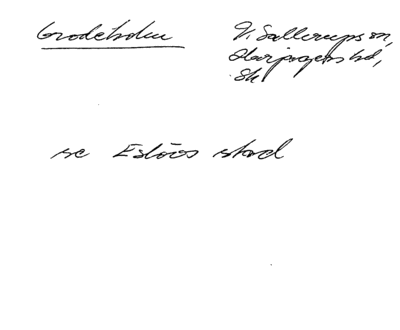 Grodeholm
V. Sallerups sn,
Harjagers hd,
Sk
se Eslövs stad